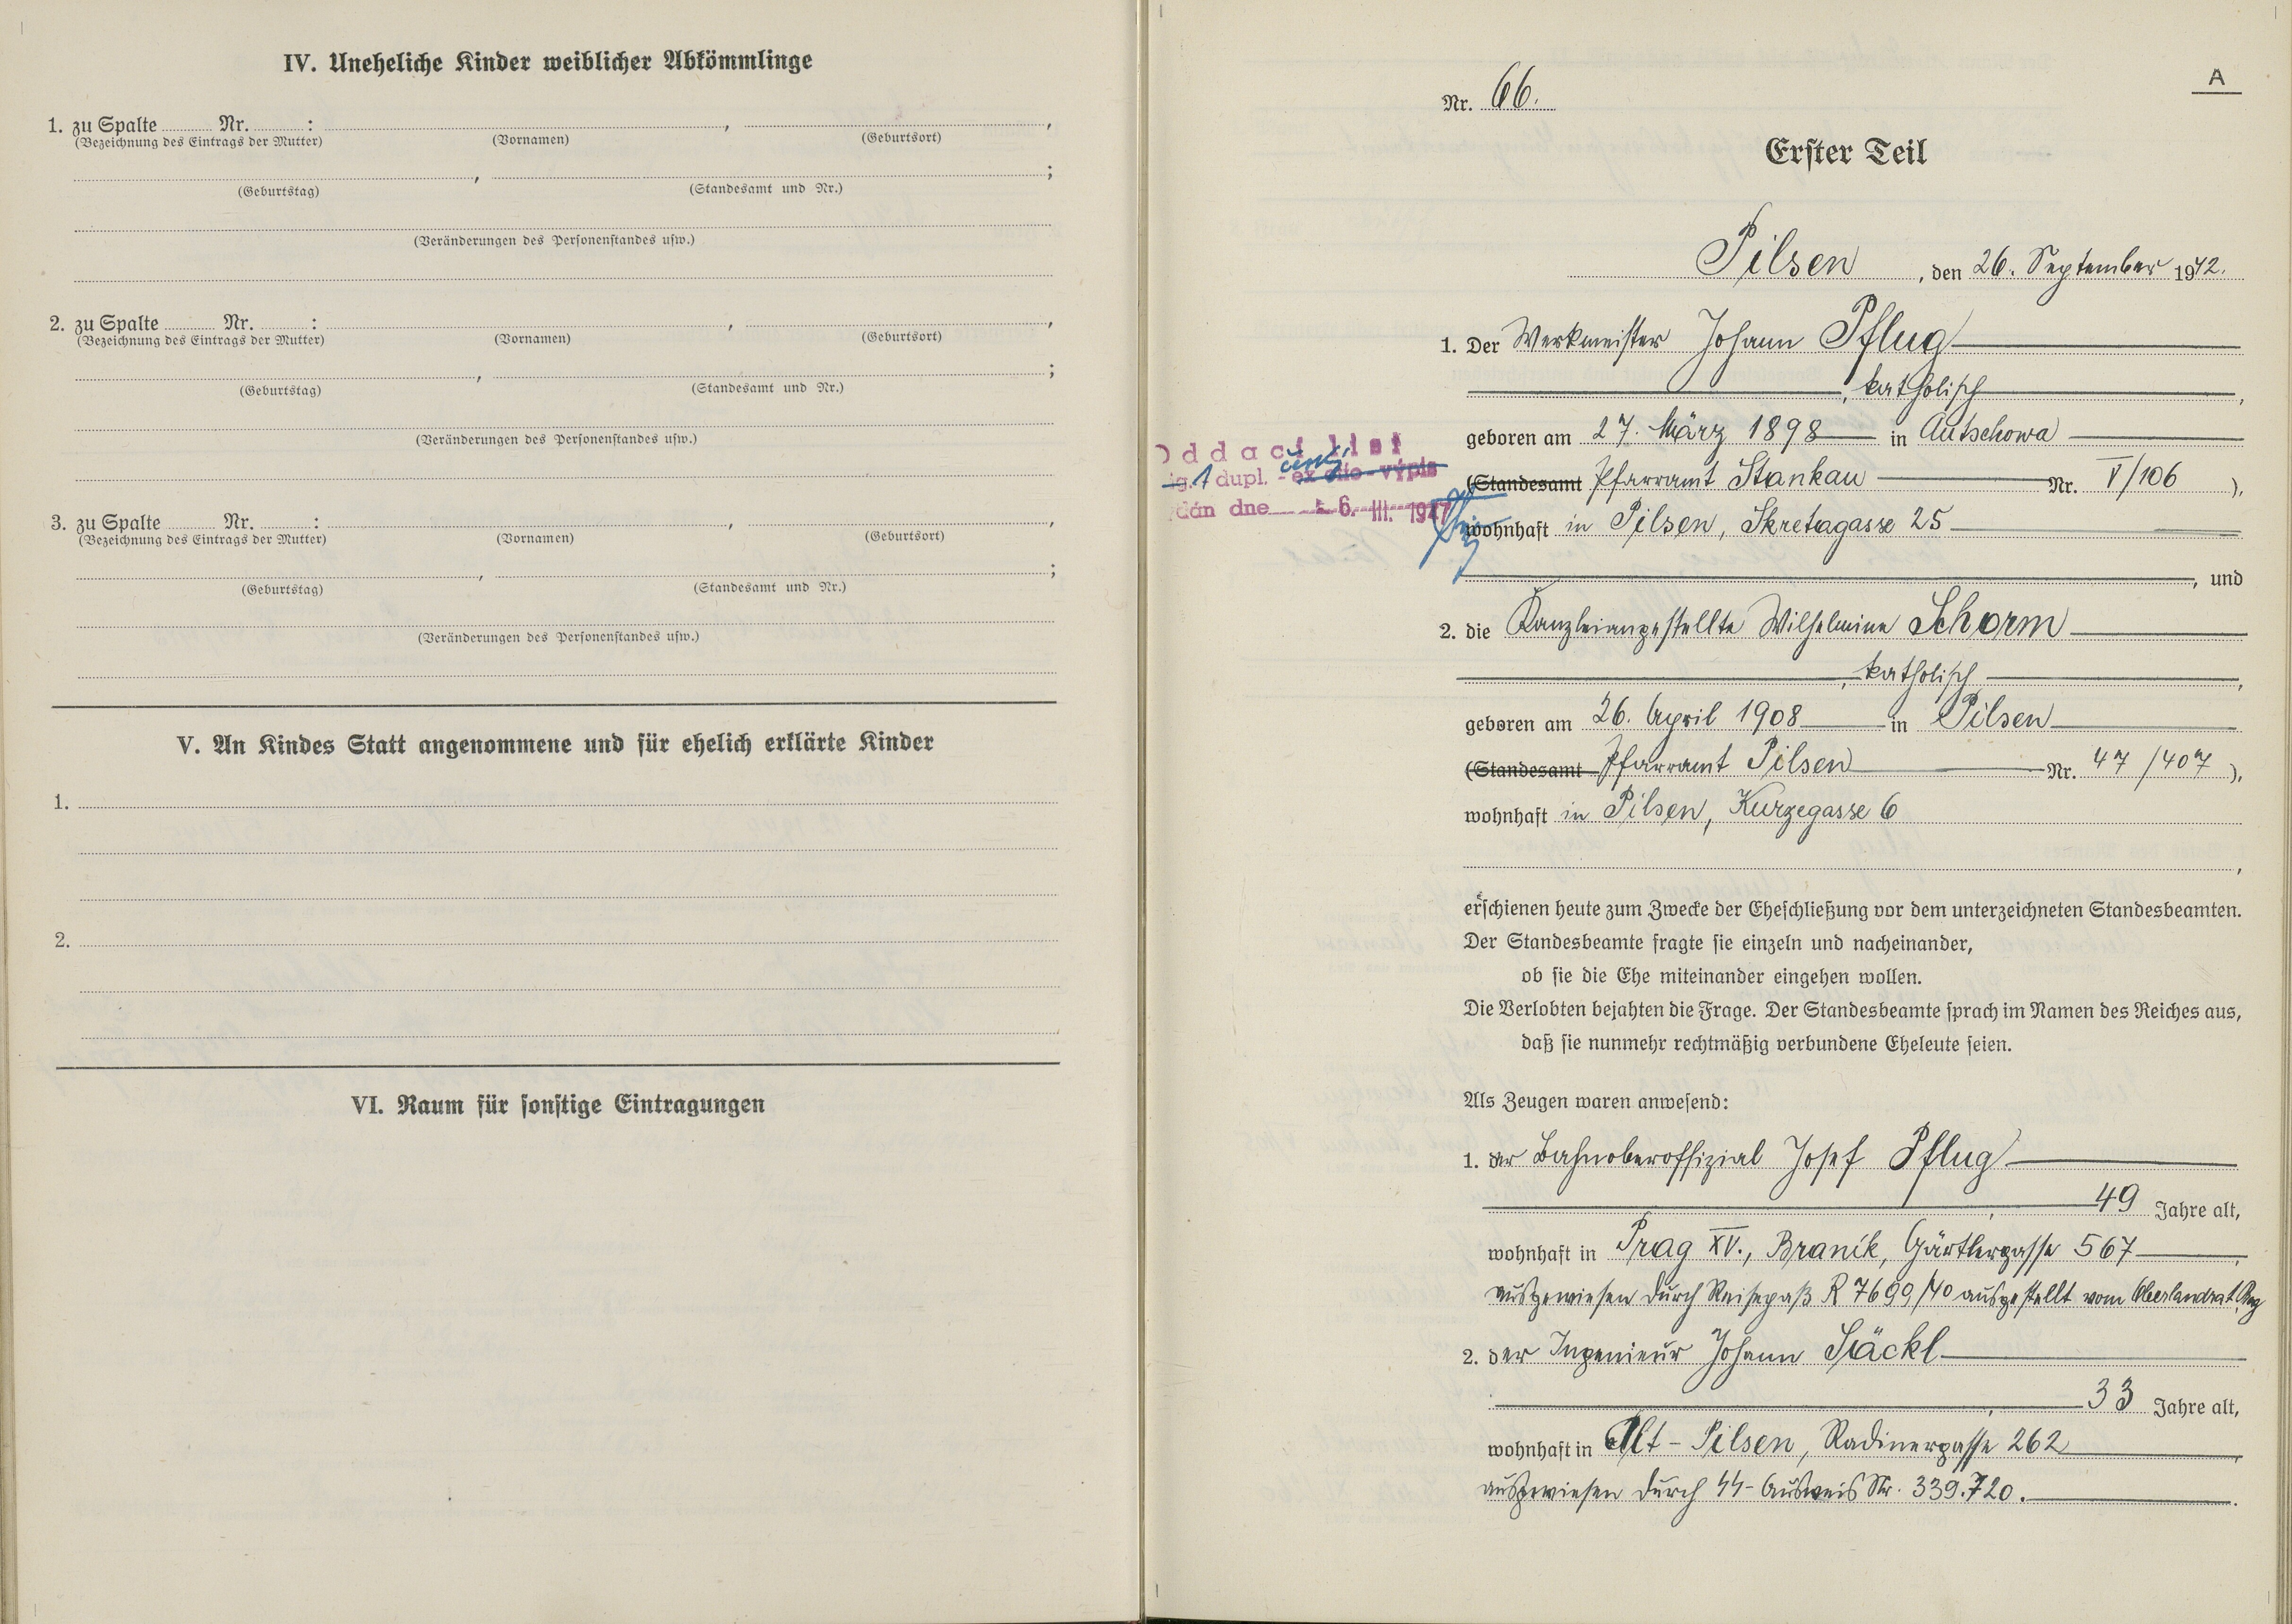 IV. Uneheliche Kinder weiblicher Abkömmlinge
1. zu Spalte ........ Nr. ........ : ........ , ........ ,
(Bezeichnung des Eintrags der Mutter) (Vornamen) (Geburtsort)
........ , ........ ;
(Geburtstag) (Standesamt und Nr.)
(Veränderungen des Personenstandes usw.)
2. zu Spalte ........ Nr. ........ : ........ , ........ ,
(Bezeichnung des Eintrags der Mutter) (Vornamen) (Geburtsort)
........ , ........ ;
(Geburtstag) (Standesamt und Nr.)
(Veränderungen des Personenstandes usw.)
3. zu Spalte ........ Nr. ........ : ........ , ........ ,
(Bezeichnung des Eintrags der Mutter) (Vornamen) (Geburtsort)
........ , ........ ;
(Geburtstag) (Standesamt und Nr.)
(Veränderungen des Personenstandes usw.)
V. An Kindes Statt angenommene und für ehelich erklärte Kinder
1.
2.
VI. Raum für sonstige Eintragungen
A
Nr. 66.
Erster Teil
Pilsen, den 26. September 1942.
1. Der Werkmeister Johann Pflug
, katholisch,
geboren am 27. März 1898 in Autschowa
(Standesamt Pfarramt Stankau Nr. V/106),
wohnhaft in Pilsen, Skretagasse 25
, und
Oddací list
ig. 1 dupl. - ex offo - výpis
dán dne 6. III. 1947
2. die Kanzleiangestellte Wilhelmine Schorm
, katholisch,
geboren am 26. April 1908 in Pilsen
(Standesamt Pfarramt Pilsen Nr. 47/407),
wohnhaft in Pilsen, Kurzegasse 6
,
erschienen heute zum Zwecke der Eheschließung vor dem unterzeichneten Standesbeamten.
Der Standesbeamte fragte sie einzeln und nacheinander,
ob sie die Ehe miteinander eingehen wollen.
Die Verlobten bejahten die Frage. Der Standesbeamte sprach im Namen des Reiches aus,
daß sie nunmehr rechtmäßig verbundene Eheleute seien.
Als Zeugen waren anwesend:
1. der Bahnoberoffizial Josef Pflug
, 49 Jahre alt,
wohnhaft in Prag XV., Branik, Gärtlergasse 567,
ausgewiesen durch Reisepaß R 7699/40 ausgestellt vom Oberlandrat Prag
2. der Ingenieur Johann Säckl
, 33 Jahre alt,
wohnhaft in Alt-Pilsen, Radinergasse 262,
ausgewiesen durch SS-Ausweis Nr. 339.720.